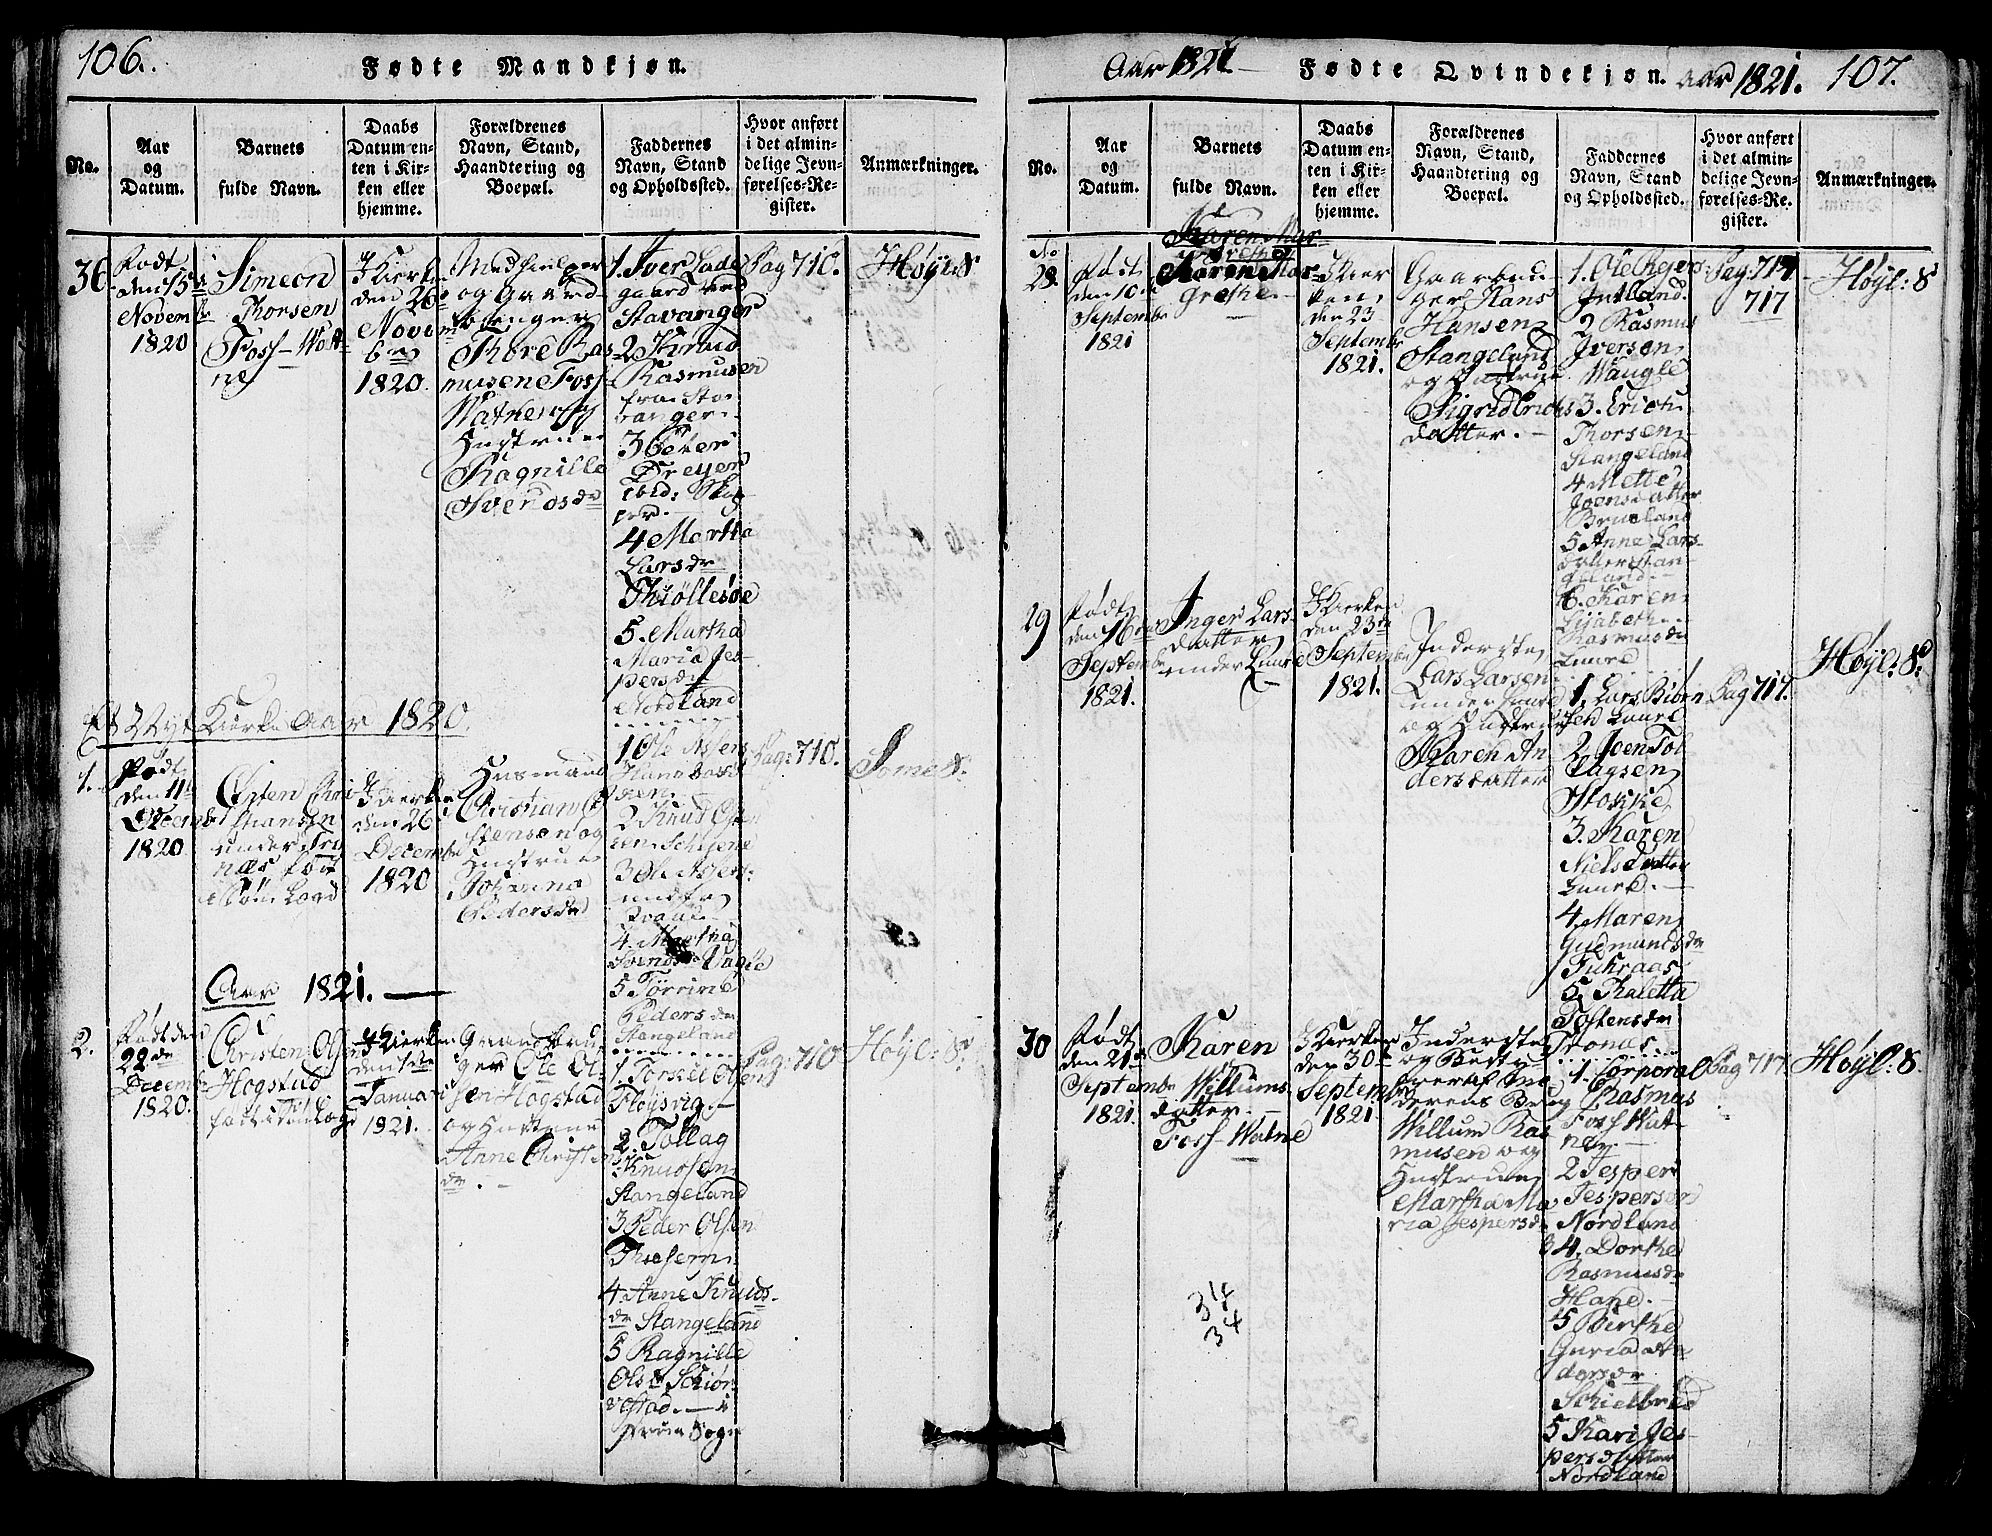 106.
Fødte Mandkjøn.
No.
Aar
og
Datum.
Barnets
fulde Navn.
Daabs
Datum en-
ten i Kir-
ken eller
hjemme.
Forældrenes
Navn, Stand,
Haandtering og
Boepæl.
Faddernes
Navn, Stand
og Opholdssted.
Hvor anført
i det almin-
delige Jevn-
førelses-Re-
gister.
Anmærkninger.
36
Født
den 15de
Novemb
1820
Simeon
Thorsen
Foss-Wat-
ne
I Kierken
den 26de
Novem
1820.
Medhielper
og Gaard
Thore Ras
musen Foss
Watne og
Hustrue
Ragnille
Sverdsdr
1. Iver Lade
gaard ved
Stavanger
2 Knud
Rasmusen
fra Sta
vanger.
3 Peter
Dreyer
ibid: Skip
per.
4 Martha
Larsdr
Thiøllesøe
5. Martha
Maria Jes-
persdr
Nordland
Pag 710.
Høyl: S
Kierke Aar 1820.
1.
Født
den 11te
1820
Christensen
under
født
I Kierken
den 26
Decemb
1820
Husmand
Christian
stensen og
Hustrue
Johanna
Pedersdr
1 Ole Assers
2 Knud
3 Ole
4. Martha
5 Tørrine
Pedersdr
Stangeland
Pag: 710.
Some S.
Aar 1821.
2.
Født den
22de
Decemb
1820.
Christen Olsen
Hogstad
I Kierken
den 1ste
Januari
1821.
Gaardbru
ger Ole Ol
sen Hogstad
og Hustrue
Anne Christens
dr.
1 Torkel Olsen
Fløysvig.
2. Tollag
Knudsen
Stangeland
3 Peder Olsen
4. Anne Knuds
dr Stangeland
5 Ragnille
Olsdr Schiør
vestad.
Pag: 710
Høyl: S.
Aar 1821
Fødte Qvindekjøn.
Aar 1821.
107.
No.
Aar
og
Datum.
Barnets
fulde Navn.
Daabs
Datum en-
ten i Kir-
ken eller
hjemme.
Forældrenes
Navn, Stand,
Haandtering og
Boepæl.
Faddernes
Navn, Stand
og Opholdssted.
Hvor anført
i det almin-
delige Jevn-
førelses-Re-
gister.
Anmærkninger.
No
28.
Født
den 10de
Septembr
1821
Karen Mar
grethe
Karen Mar
grethe.
I Kier
ken
den 23
Septembr
1821.
Gaardbru
ger Hans
Hansen
Stangeland
og Hustrue
Sigrid Erichs
datter.
1. Ole
Jutland.
2 Rasmus
Iversen
Waugle
3. Erich
Thorsen
Stangeland
4 Mette
Joensdatter
Brueland
5 Anne Lars-
datter Stan-
geland.
6. Karen
Lisabeth
Rasmusdr
Luure
Pag: 717
717
Høyl: S
29
Født
den 16de
Septembr
1821.
Inger Lars-
datter
under Luure
I Kierken
den 23de
Septembr
1821.
Inderste
Lars Larsen
under Luure
og Hustrue
Karen An
dersdatter
1. Lars Biørn
sen Luure
2. Joen Tol
lagsen
Stokke
3. Karen
Nielsdatter
Luure.
4. Maren
Gudmundsdr
Tuhraas
5. Raletta
Tostensdr
Pag 717.
Høyl: S.
30
Født
den 21de
Septembr
1821.
Karen
Willums
datter.
Foss-Watne
I Kierken
den 30te
Septembr
1821
Inderste
og Besty
rer af Mo
derens Brug
Willum Ras
musen og
Hustrue
Martha Ma
ria Jespersdr
1. Corporal
Rasmus
Foss Wat-
ne.
2 Jesper
Jespersen
Nordland
34. Dorthe
Rasmusdr
Hane.
5 Berthe
Guria An
dersdr
Schielbred
5 Kari Jes-
persdatter
Nordland
Pag 717.
Høyl: S.
34
34